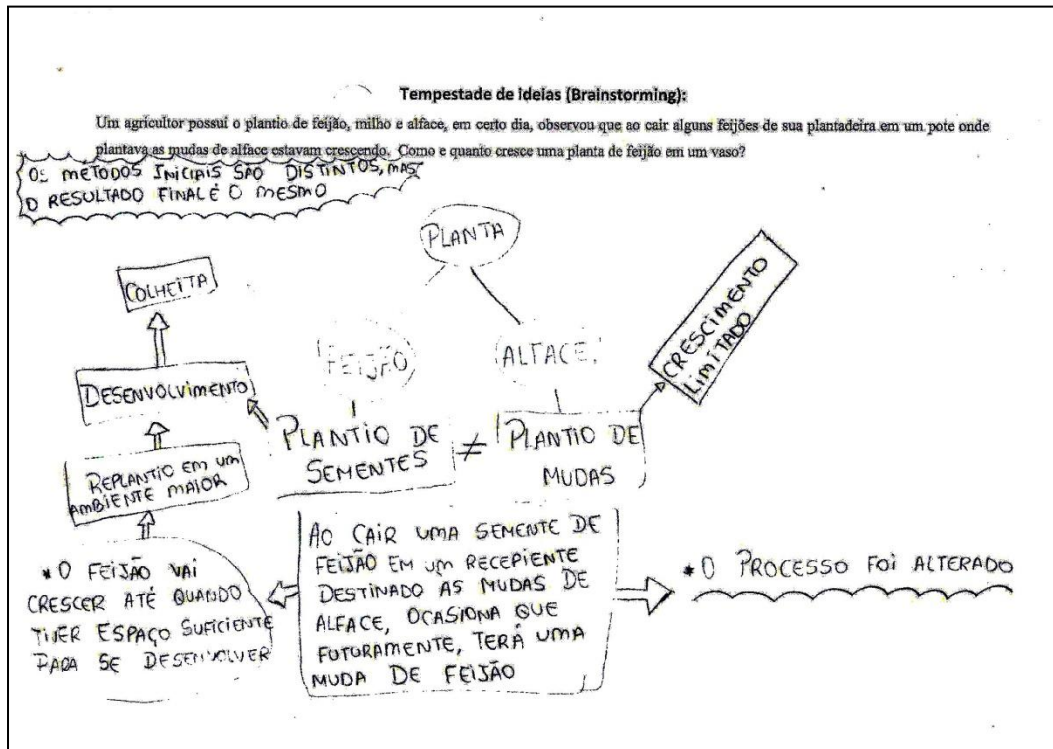 Tempestade de Ideias (Brainstorming):
Um agricultor possui o plantio de feijão, milho e alface, em certo dia, observou que ao cair alguns feijões de sua plantadeira em um pote onde
plantava as mudas de alface estavam crescendo. Como e quanto cresce uma planta de feijão em um vaso?
OS METODOS INICIAIS SÃO DISTINTOS, MAS
O RESULTADO FINAL É O MESMO
PLANTA
COLHEITA
FEIJÃO
ALFACE
CRESCIMENTO
LIMITADO
DESENVOLVIMENTO
PLANTIO DE
SEMENTES
≠
PLANTIO DE
MUDAS
REPLANTIO EM UM
AMBIENTE MAIOR
* O FEIJÃO VAI
CRESCER ATÉ QUANDO
TIVER ESPAÇO SUFICIENTE
PARA SE DESENVOLVER
AO CAIR UMA SEMENTE DE
FEIJÃO EM UM RECEPIENTE
DESTINADO AS MUDAS DE
ALFACE, OCASIONA QUE
FUTURAMENTE, TERÁ UMA
MUDA DE FEIJÃO
* O PROCESSO FOI ALTERADO